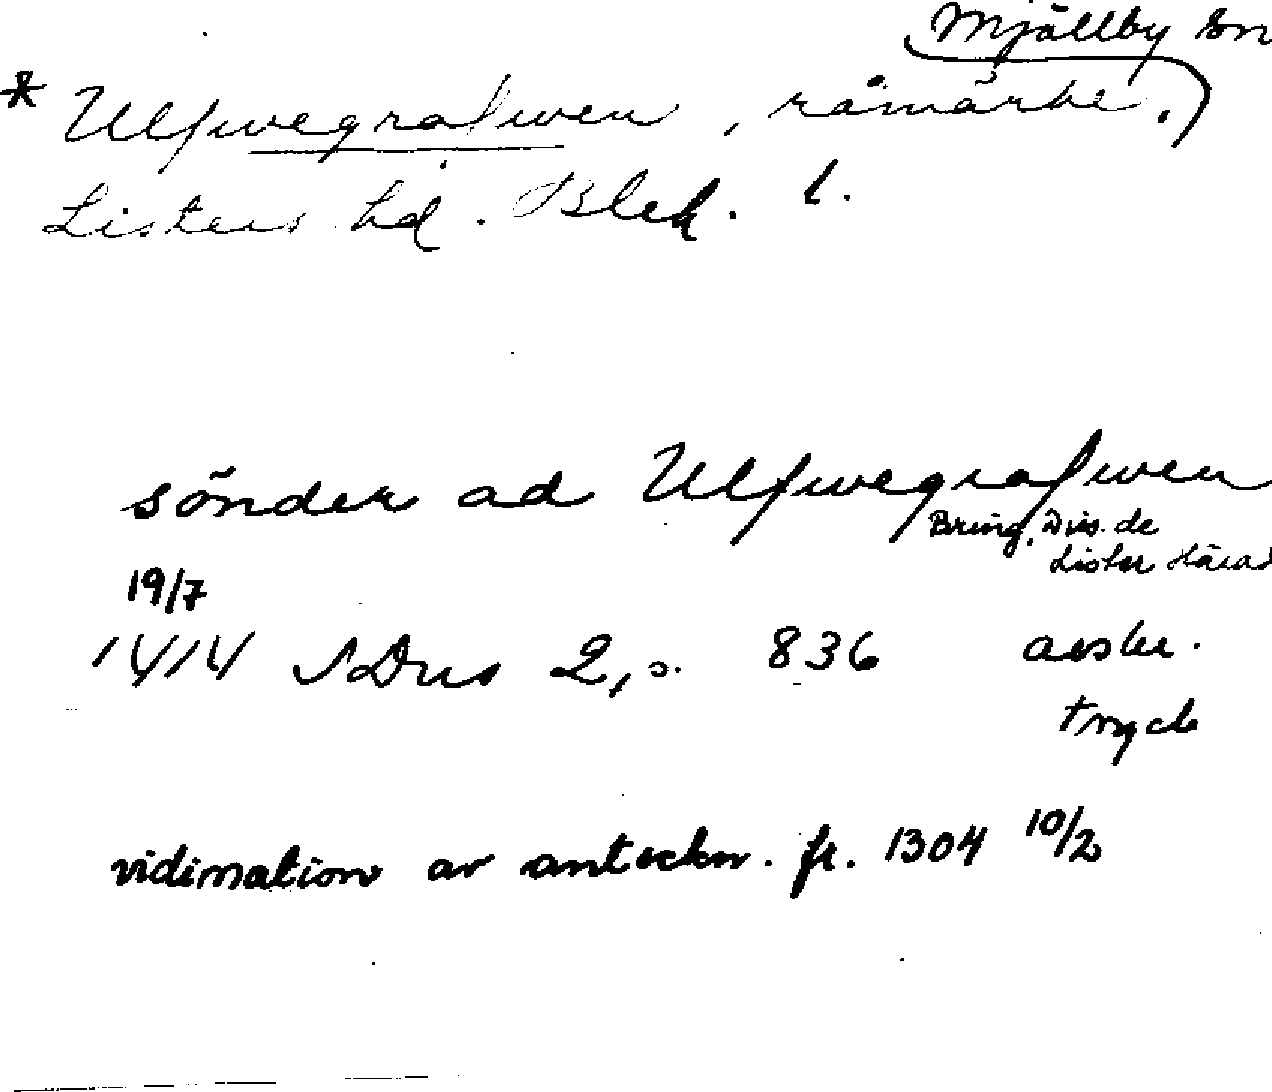 Mjällby sn
* Ulfwegrafwen, råmärke.
Listers hd. Blek. l.
sönder ad Ulfwegrafwen
Bring, Dis. de
Lister Härad
19/7
1414 SDns 2, s. 836 avskr.
tryck
vidimation av anteckn. fr. 1304 10/2